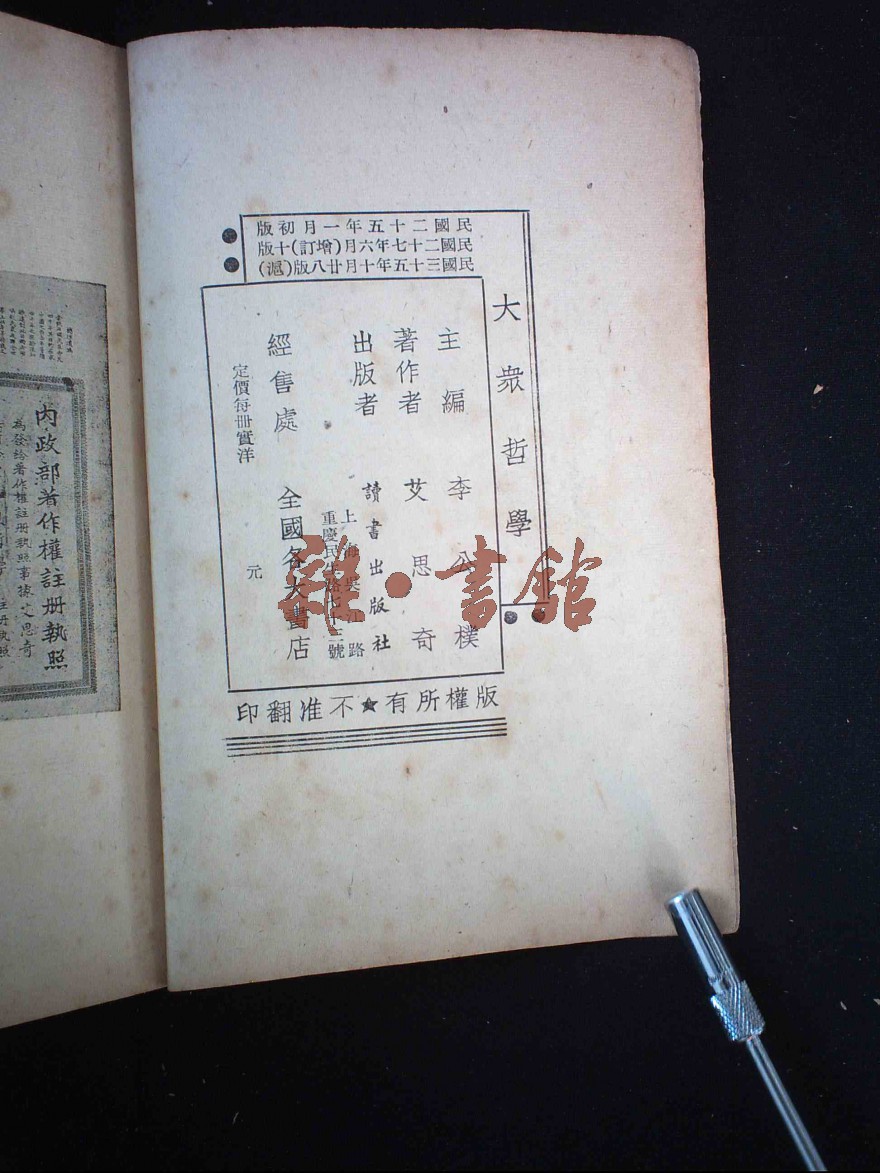 大衆哲學
民國二十五年一月初版
民國二十七年六月(增訂)十版
民國三十五年十月廿八版(滬)
主編 李公樸
著作者 艾思奇
出版者 讀書出版社
上海吳江路
重慶民生路七十三號
經售處 全國各大書店
定價每冊實洋 元
版權所有★不准翻印
雜·書館
內政部著作權註册執照
為發給著作權註册執照事據艾思奇